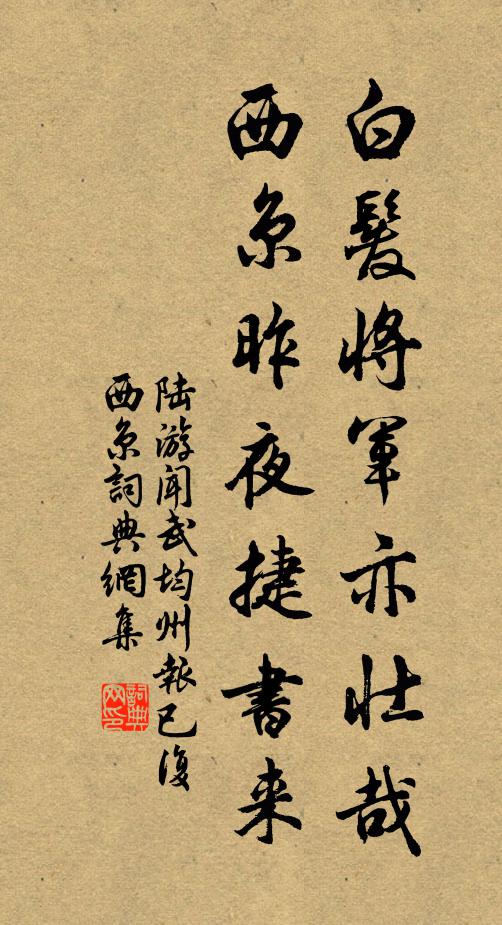 白髮將軍亦壯哉
西京昨夜捷書來
陆游闻武均州報已復
西京詞典網集
詞典网印